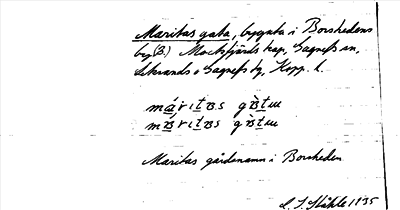 Maritas gata, byggata i Borshedens
by (B.) Mockfjärds kap, Gagnefs sn,
Lekrands o Gagnefs tg, Kopp. l.
márıtʙs gʙ̀tɯ
mʙ́rıtʙs gʙ̀tɯ
Maritas gårdsnamn i Borsheden
1935